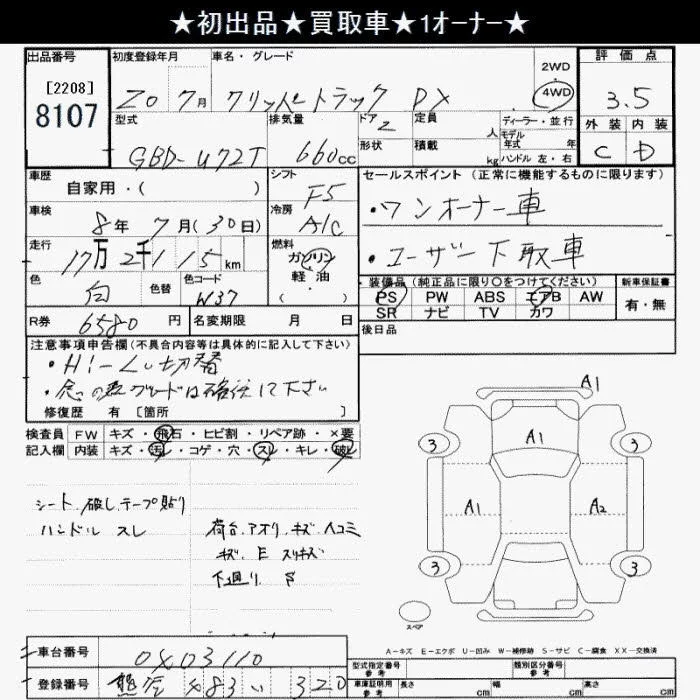 ★初出品★買取車★1オーナー★
出品番号 初度登録年月 車名・グレード 2WD 評価点
[2208] 20 7月 クリッパートラック DX 4WD 3.5
8107 型式 排気量 ドア 2 定員 人 ディーラー・並行 外装 内装
GBD-U72T 660cc 形状 積載 kg モデル年式 年 ハンドル 左・右 C D
車歴 シフト セールスポイント (正常に機能するものに限ります)
自家用・( ) F5 ・ワンオーナー車
車検 8年 7月(30日) 冷房 A/C
走行 17万2千115km 燃料 ガソリン ・ユーザー下取車
色 色替 色コード 軽・油 ・装備品(純正品に限り○をつけてください) 新車保証書
白 W37 ( ) PS PW ABS エアB AW 有・無
R券 6580円 名変期限 月 日 SR ナビ TV カワ
後日品
注意事項申告欄(不具合内容等は具体的に記入して下さい)
・Hi-Lo切替
・念の為グレードは確認して下さい
修復歴 有 [箇所 ]
検査員 FW キズ・飛石・ヒビ割・リペア跡・×要
記入欄 内装 キズ・汚レ・コゲ・穴・スレ・キレ・破レ
シート 破レ テープ貼リ
ハンドル スレ
荷台、アオリ、キズ、ヘコミ
キズ、E スリキズ
下廻リ S
A1
A1
3 3
A1 A2
3 3
スペア
A-キズ E-エクボ U-凹み W-補修跡 S-サビ C-腐食 XX-交換済
車台番号 0XD3110 型式指定番号 参考 類別区分番号 参考
登録番号 車庫証明用 参考 長さ cm 幅 cm 高さ cm